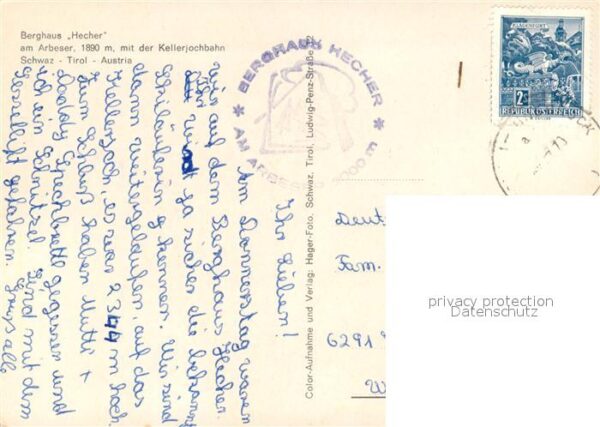 Berghaus „Hecher"
am Arbeser, 1890 m, mit der Kellerjochbahn
Schwaz - Tirol - Austria
BERGHAUS HECHER
AM ARBESER
KLAGENFURT
2S
REPUBLIK ÖSTERREICH
Color-Aufnahme und Verlag: Hager-Foto, Schwaz, Tirol, Ludwig-Penz-Straße 22
Ihr Lieben!
Am Donnerstag waren
wir auf dem Berghaus Hecher.
ja sicher die
kennen. Wir sind
dann weitergelaufen, auf das
Kellerjoch, es war 2344 m hoch.
Zum Schluß haben Mutti +
Speckbrettl gegessen und
ich ein Schnitzel. Sind mit dem
Sessellift gefahren. Gruß
Fam.
6291
privacy protection
Datenschutz